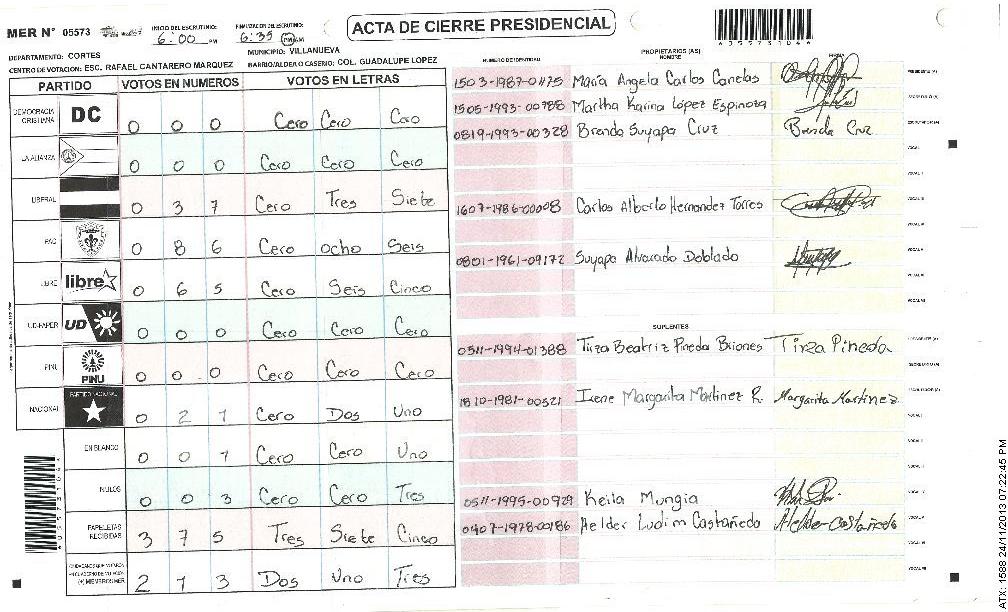 MER N° 05573
INICIO DEL ESCRUTINIO: 6:00 PM
FINALIZACION DEL ESCRUTINIO: 6:35 PM
ACTA DE CIERRE PRESIDENCIAL
DEPARTAMENTO: CORTES
MUNICIPIO: VILLANUEVA
CENTRO DE VOTACION: ESC. RAFAEL CANTARERO MARQUEZ
BARRIO/ALDEA O CASERIO: COL. GUADALUPE LOPEZ
PARTIDO VOTOS EN NUMEROS VOTOS EN LETRAS
DEMOCRACIA CRISTIANA DC 0 0 0 Cero Cero Cero
LA ALIANZA 0 0 0 Cero Cero Cero
LIBERAL 0 3 7 Cero Tres Siete
PAC 0 8 6 Cero ocho Seis
LIBRE libre 0 6 5 Cero Seis Cinco
UD-FAPER UD 0 0 0 Cero Cero Cero
PINU PINU 0 0 0 Cero Cero Cero
NACIONAL PARTIDO NACIONAL 0 2 1 Cero Dos Uno
EN BLANCO 0 0 1 Cero Cero Uno
NULOS 0 0 3 Cero Cero Tres
PAPELETAS RECIBIDAS 3 7 5 Tres Siete Cinco
CIUDADANOS QUE VOTARON EN CUADERNO DE VOTACION (+) MIEMBROS MER 2 1 3 Dos Uno Tres
PROPIETARIOS (AS)
NUMERO DE IDENTIDAD NOMBRE FIRMA
1503-1987-01175 María Angela Carlos Canelas PRESIDENTE (A)
1505-1993-00788 Martha Karina López Espinoza SECRETARIO (A)
0819-1993-00328 Brenda Suyapa Cruz Brenda Cruz ESCRUTADOR (A)
VOCAL I
VOCAL II
1607-1986-00008 Carlos Alberto Hernandez Torres VOCAL III
VOCAL IV
0801-1961-09172 Suyapa Alvarado Doblado VOCAL V
VOCAL VI
VOCAL VII
SUPLENTES
0511-1994-01388 Tirza Beatriz Pineda Briones Tirza Pineda PRESIDENTE (A)
SECRETARIO (A)
1810-1981-00521 Irene Margarita Martinez R. Margarita Martinez ESCRUTADOR (A)
VOCAL I
VOCAL II
VOCAL III
0511-1995-00929 Keila Mungia VOCAL IV
0407-1978-00186 Helder Ludim Castañeda Helder Castañeda VOCAL V
VOCAL VI
VOCAL VII
ATX: 1588 24/11/2013 07:22:45 PM